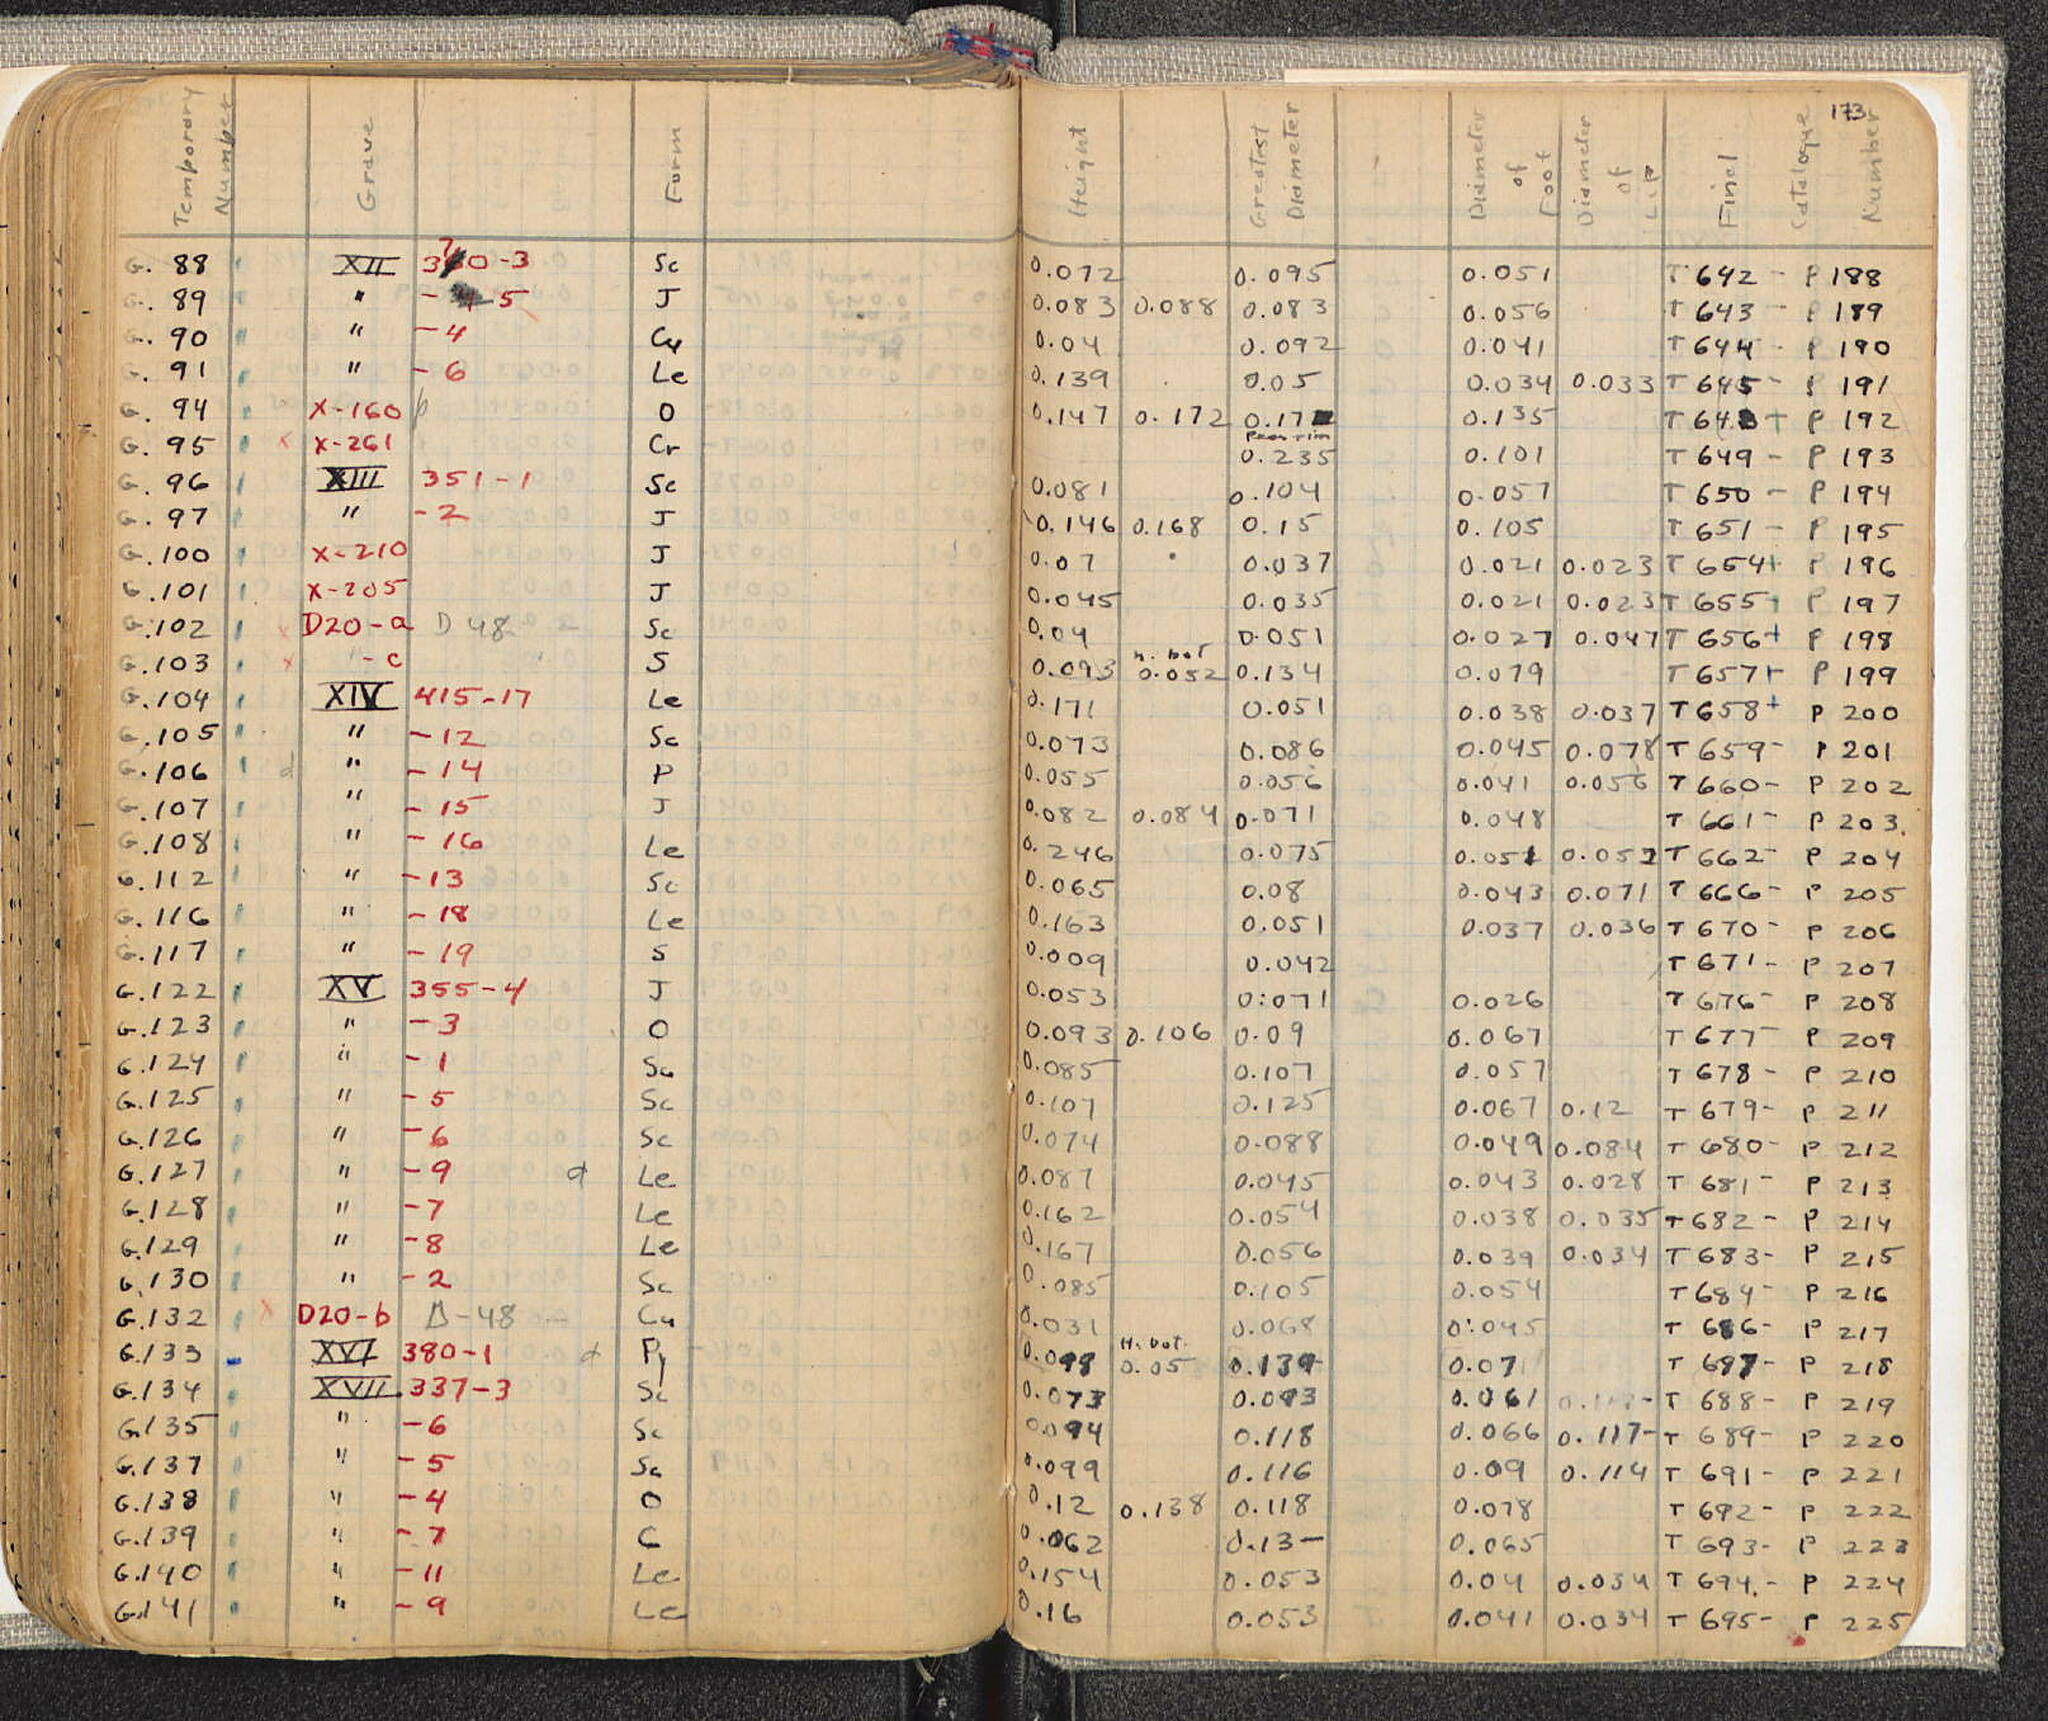 173
Temporary Number Grave Form Height Greatest Diameter Diameter of Foot Diameter of Lip Final Catalogue Number
G. 88 XII 370-3 Sc 0.072 0.095 0.051 T 642 - P 188
G. 89 " -5 J 0.083 0.088 0.083 0.056 T 643 - P 189
G. 90 " -4 Cy 0.04 0.092 0.041 T 644 - P 190
G. 91 " -6 Le 0.139 0.05 0.034 0.033 T 645 - P 191
G. 94 X-160 O 0.147 0.172 0.17 0.135 T 648 + P 192
G. 95 x X-261 Cr 0.235 0.101 T 649 - P 193
G. 96 XIII 351-1 Sc 0.081 0.104 0.057 T 650 - P 194
G. 97 " -2 J 0.146 0.168 0.15 0.105 T 651 - P 195
G. 100 X-210 J 0.07 0.037 0.021 0.023 T 654+ P 196
G. 101 X-205 J 0.045 0.035 0.021 0.023 T 655+ P 197
G. 102 x D20-a D 48 Sc 0.04 0.051 0.027 0.047 T 656+ P 198
G. 103 x " -c S 0.093 h. bot 0.052 0.134 0.079 T 657+ P 199
G. 104 XIV 415-17 Le 0.171 0.051 0.038 0.037 T 658+ P 200
G. 105 " -12 Sc 0.073 0.086 0.045 0.078 T 659- P 201
G. 106 d " -14 P 0.055 0.056 0.041 0.056 T 660- P 202
G. 107 " -15 J 0.082 0.084 0.071 0.048 T 661- P 203.
G. 108 " -16 Le 0.246 0.075 0.051 0.052 T 662- P 204
G. 112 " -13 Sc 0.065 0.08 0.043 0.071 T 666- P 205
G. 116 " -18 Le 0.163 0.051 0.037 0.036 T 670- P 206
G. 117 " -19 S 0.009 0.042 T 671- P 207
G. 122 XV 355-4 J 0.053 0.071 0.026 T 676- P 208
G. 123 " -3 O 0.093 0.106 0.09 0.067 T 677- P 209
G. 124 " -1 Sc 0.085 0.107 0.057 T 678- P 210
G. 125 " -5 Sc 0.107 0.125 0.067 0.12 T 679- P 211
G. 126 " -6 Sc 0.074 0.088 0.049 0.084 T 680- P 212
G. 127 " -9 d Le 0.087 0.045 0.043 0.028 T 681- P 213
G. 128 " -7 Le 0.162 0.054 0.038 0.035 T 682- P 214
G. 129 " -8 Le 0.167 0.056 0.039 0.034 T 683- P 215
G. 130 " -2 Sc 0.085 0.105 0.054 T 684- P 216
G. 132 x D20-b D-48 Cu 0.031 0.068 0.045 T 686- P 217
G. 133 XVI 380-1 d Py 0.098 H. bot. 0.05 0.139 0.071 T 687- P 218
G. 134 XVII 337-3 Sc 0.073 0.093 0.061 T 688- P 219
G. 135 " -6 Sc 0.094 0.118 0.066 0.117- T 689- P 220
G. 137 " -5 Sc 0.099 0.116 0.09 0.114 T 691- P 221
G. 138 " -4 O 0.12 0.138 0.118 0.078 T 692- P 222
G. 139 " -7 C 0.062 0.13- 0.065 T 693- P 223
G. 140 " -11 Le 0.154 0.053 0.04 0.034 T 694.- P 224
G. 141 " -9 Le 0.16 0.053 0.041 0.034 T 695- P 225